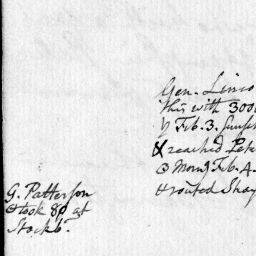 Gen. Linco
this with 300
Feb. 3.
& reached Pete
Morn'g Feb. 4.
& routed Shay
G. Patterson
& took 80 at
Stockb.